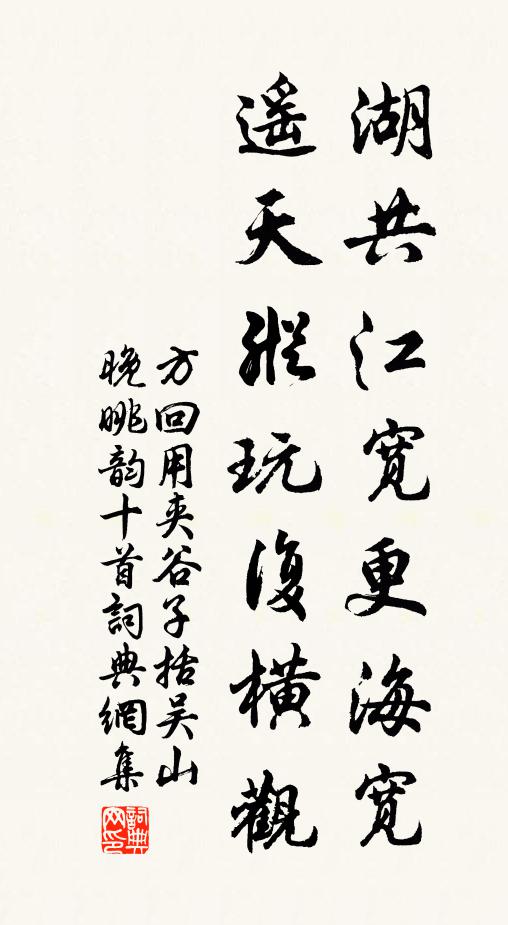 湖共江寬更海寬
遥天縱玩復橫觀
方回用夾谷子括吴山
晚眺韵十首詞典網集
詞典
网印